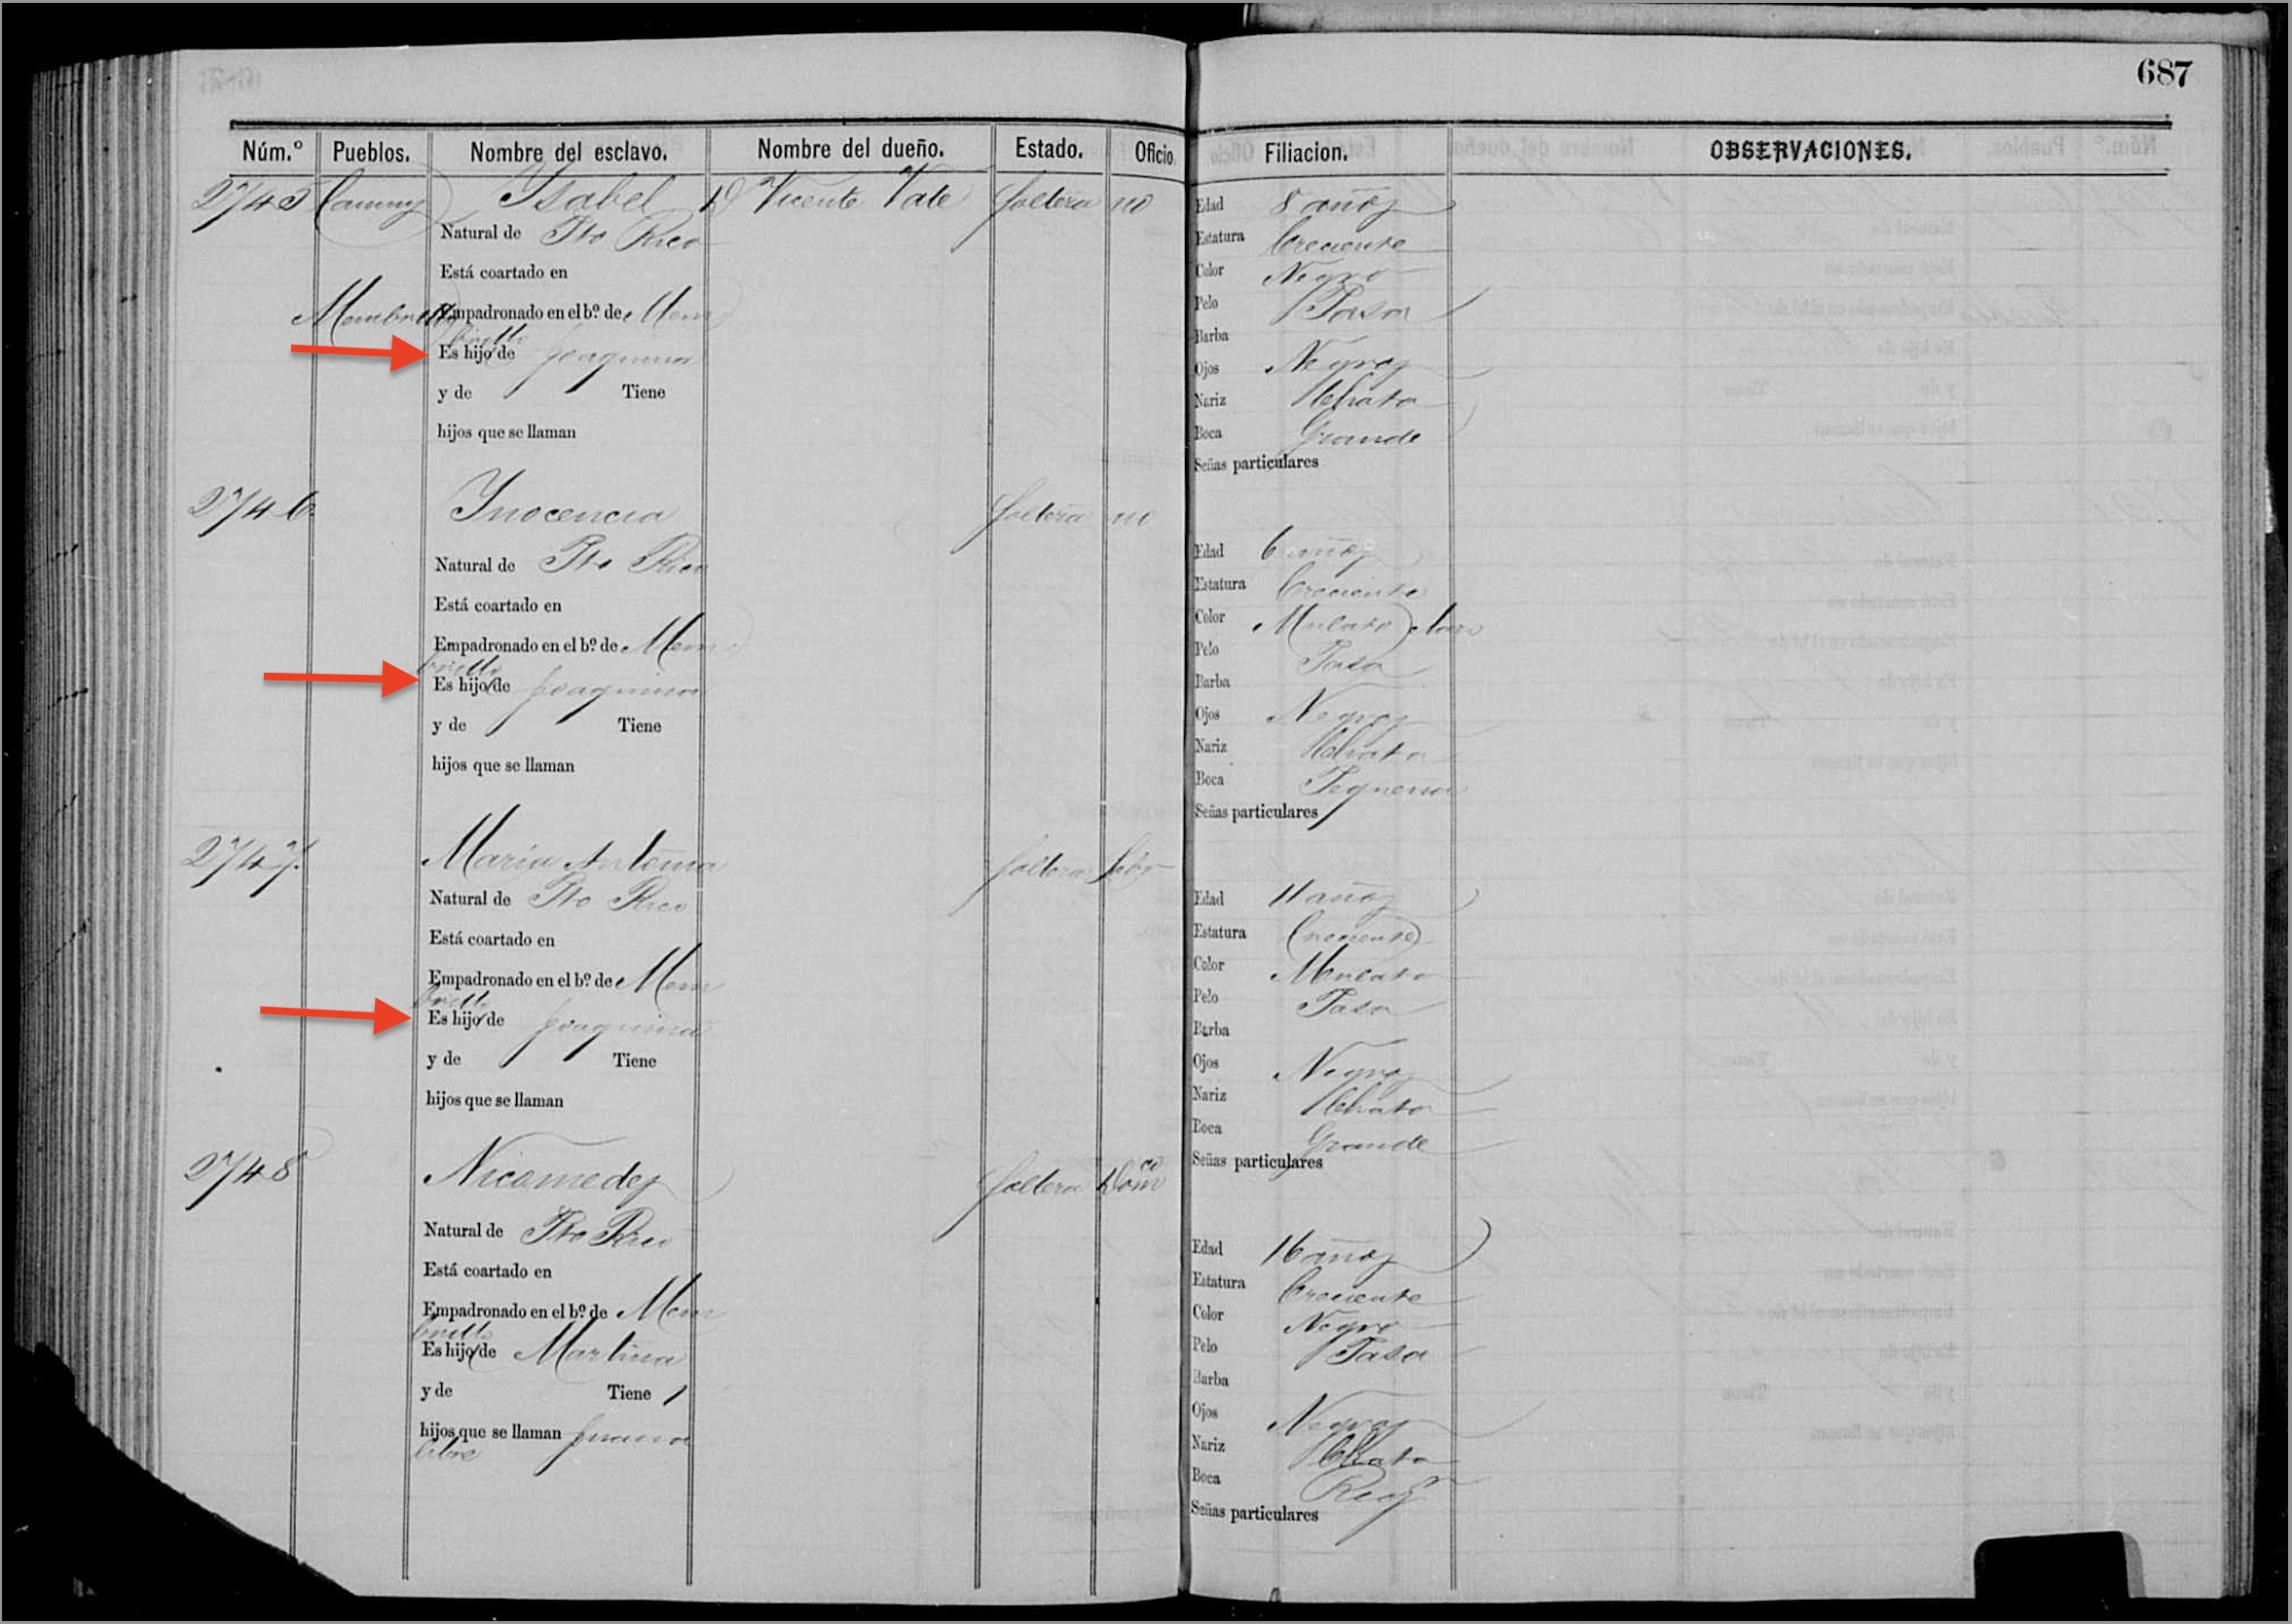 687
Núm.º Pueblos. Nombre del esclavo. Nombre del dueño. Estado. Oficio Filiacion. OBSERVACIONES.
2745 Camuy Ysabel D Vicente Vale Soltera no
Natural de Pto Rico
Está coartado en
Membrillo Empadronado en el bº. de Mem
brillo
Es hijo de Joaquina
y de Tiene
hijos que se llaman
Edad 8 años
Estatura Creciente
Color Negro
Pelo Pasa
Barba
Ojos Negros
Nariz Chata
Boca Grande
Señas particulares
2746. Ynocencia Soltera no
Natural de Pto Rico
Está coartado en
Empadronado en el bº. de Mem
brillo
Es hijo de Joaquina
y de Tiene
hijos que se llaman
Edad 6 años
Estatura Creciente
Color Mulato claro
Pelo Pasa
Barba
Ojos Negros
Nariz Chata
Boca Pequeña
Señas particulares
2747. Maria Antonia Soltera Labr
Natural de Pto Rico
Está coartado en
Empadronado en el bº. de Mem
brillo
Es hijo de Joaquina
y de Tiene
hijos que se llaman
Edad 11 años
Estatura Creciente
Color Mulato
Pelo Pasa
Barba
Ojos Negros
Nariz Chata
Boca Grande
Señas particulares
2748 Nicomedes Soltera Domco
Natural de Pto Rico
Está coartado en
Empadronado en el bº. de Mem
brillo
Es hijo de Martina
y de Tiene 1
hijos que se llaman Juana
libre
Edad 16 años
Estatura Creciente
Color Negro
Pelo Pasa
Barba
Ojos Negros
Nariz Chata
Boca Regr
Señas particulares